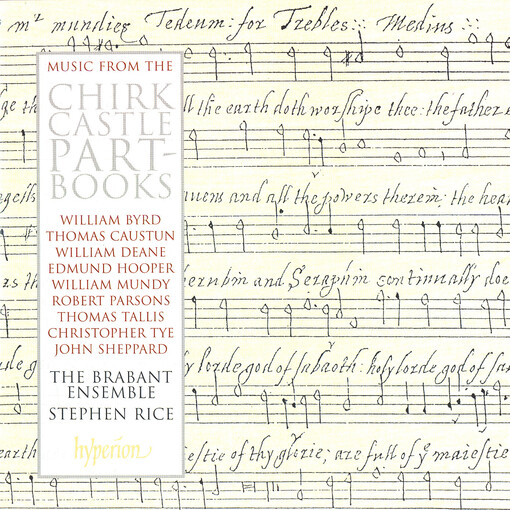 mr mundies Tedeum: for Trebles: Medius
MUSIC FROM THE
CHIRK
CASTLE
PART-
BOOKS
WILLIAM BYRD
THOMAS CAUSTUN
WILLIAM DEANE
EDMUND HOOPER
WILLIAM MUNDY
ROBERT PARSONS
THOMAS TALLIS
CHRISTOPHER TYE
JOHN SHEPPARD
THE BRABANT
ENSEMBLE
STEPHEN RICE
hyperion
ll the earth doth worshipe thee: the father
and all the powers therein: the hea
and Seraphin continually doe
lorde god of sabaoth: holy lorde god of sa
earth
stie of thy glorie; are full of ye maiestie